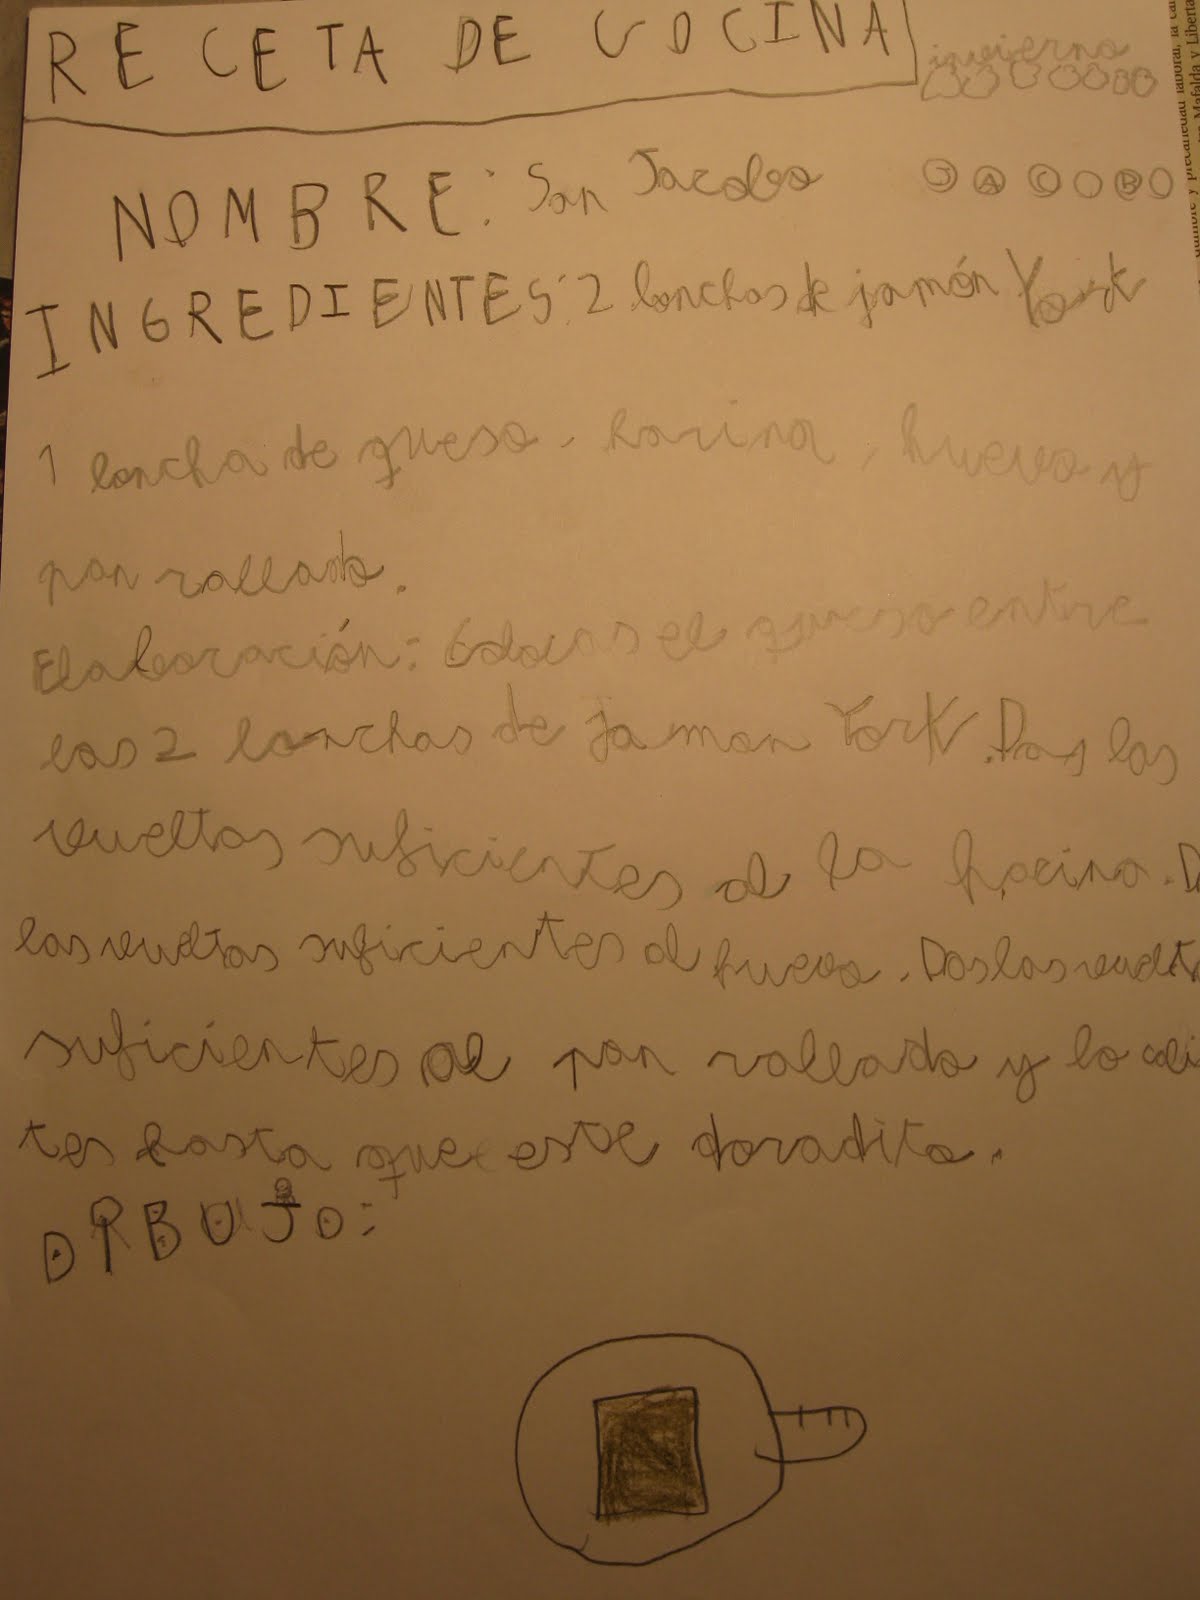 RECETA DE COCINA
invierno
NOMBRE: San Jacobo
JACOBO
INGREDIENTES: 2 lonchas de jamón York
1 loncha de queso, harina, huevo y
pan rallado.
Elaboración: Colocas el queso entre
las 2 lonchas de jamon York. Das las
vueltas suficientes al la harina. D
las vueltas suficientes al huevo. Das las vuelt
suficientes al pan rallado y lo cali
tes hasta que este doradito.
DIBUJO: